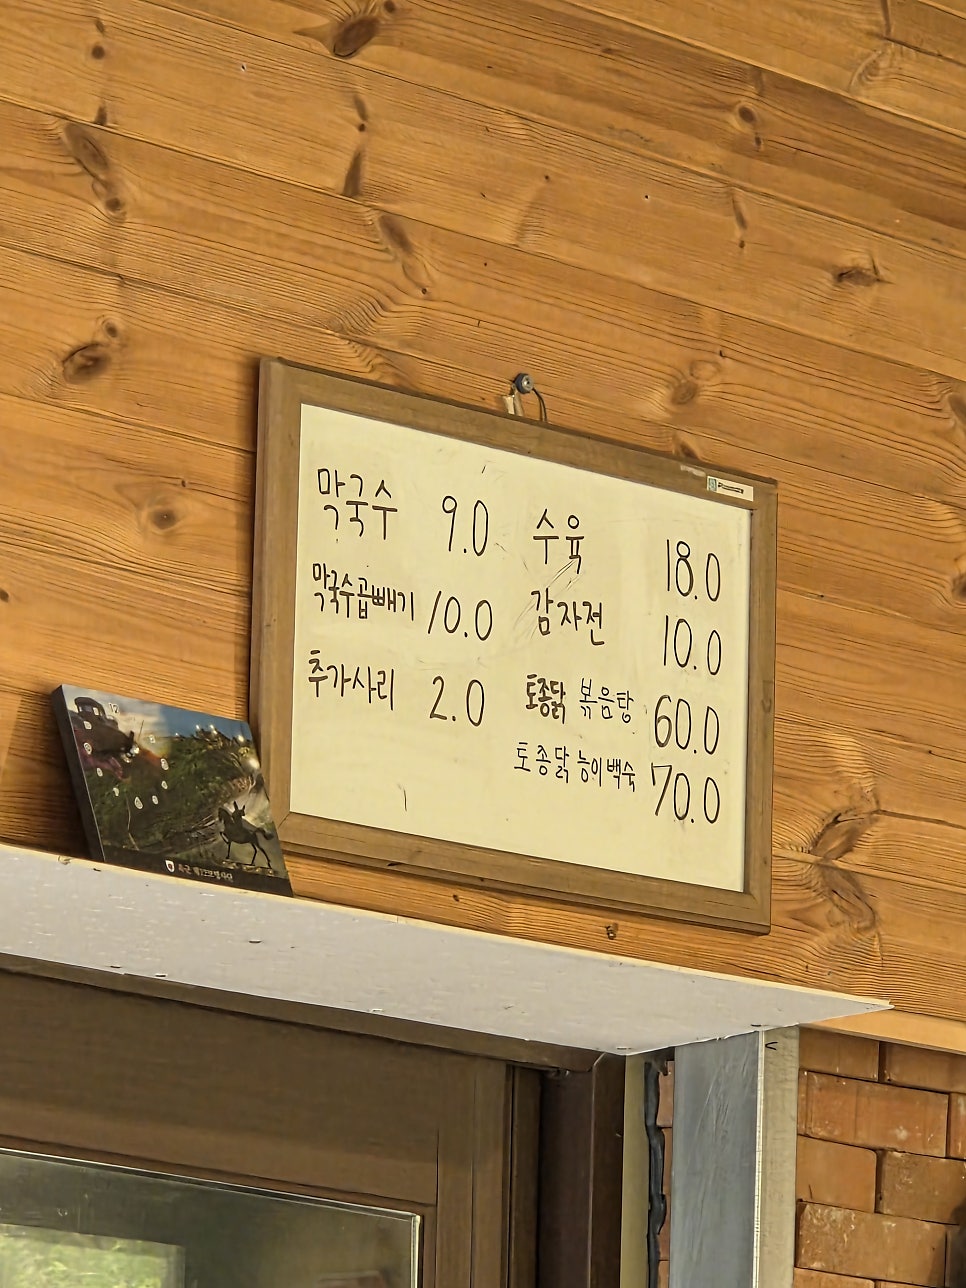 막국수 9.0
막국수곱빼기 10.0
추가사리 2.0
수육 18.0
감자전 10.0
토종닭 볶음탕 60.0
토종닭 능이백숙 70.0